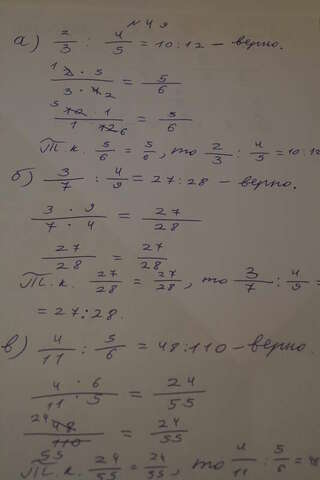 № 49
а) 2/3 : 4/5 = 10:12 – верно.
1 2 · 5 / 3 · 4 2 = 5/6
5 10 · 1 / 1 · 12 6 = 5/6
Т. к. 5/6 = 5/6, то 2/3 : 4/5 = 10:12
б) 3/7 : 4/9 = 27:28 – верно.
3 · 9 / 7 · 4 = 27/28
27/28 = 27/28
Т. к. 27/28 = 27/28, то 3/7 : 4/9 =
= 27:28.
в) 4/11 : 5/6 = 48:110 – верно.
4 · 6 / 11 · 5 = 24/55
24 48 / 110 55 = 24/55
Т. к. 24/55 = 24/55, то 4/11 : 5/6 = 4